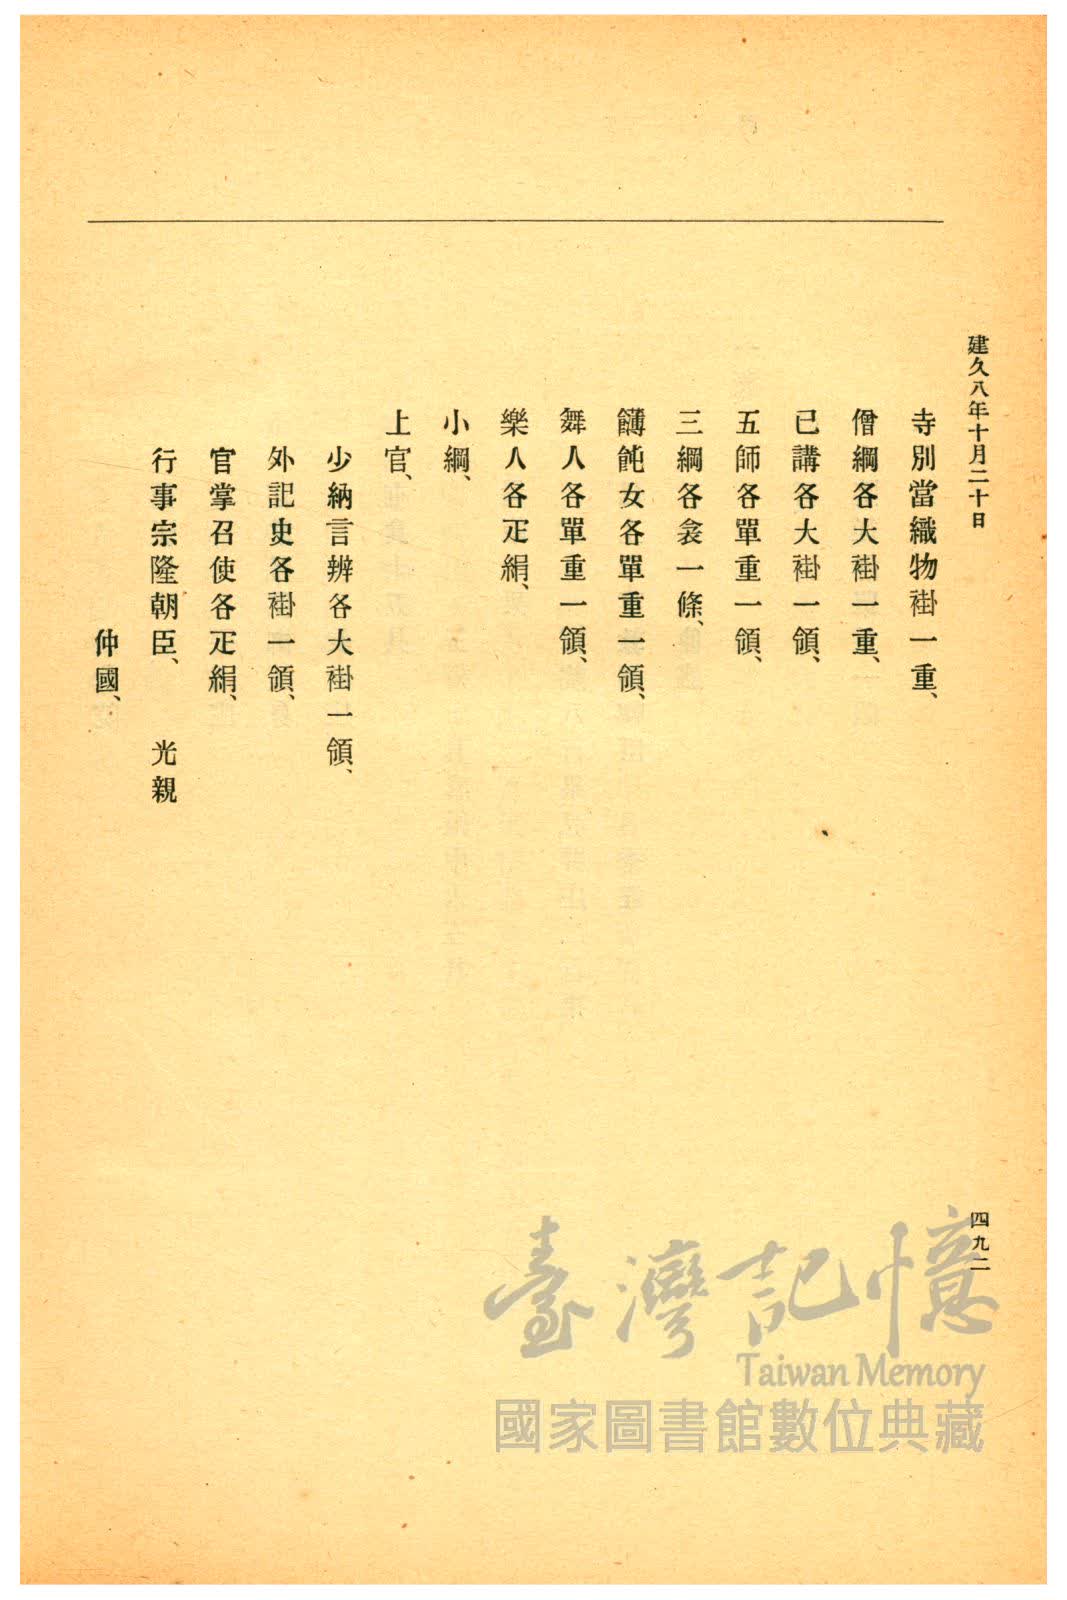 建久八年十月二十日
寺別當織物褂一重、
僧綱各大褂一重、
已講各大褂一領、
五師各單重一領、
三綱各衾一條、
餺飩女各單重一領、
舞人各單重一領、
樂人各疋絹、
小綱、
上官、
少納言辨各大褂一領、
外記史各褂一領、
官掌召使各疋絹、
行事宗隆朝臣、 光親
仲國、
四九二
臺灣記憶
Taiwan Memory
國家圖書館數位典藏